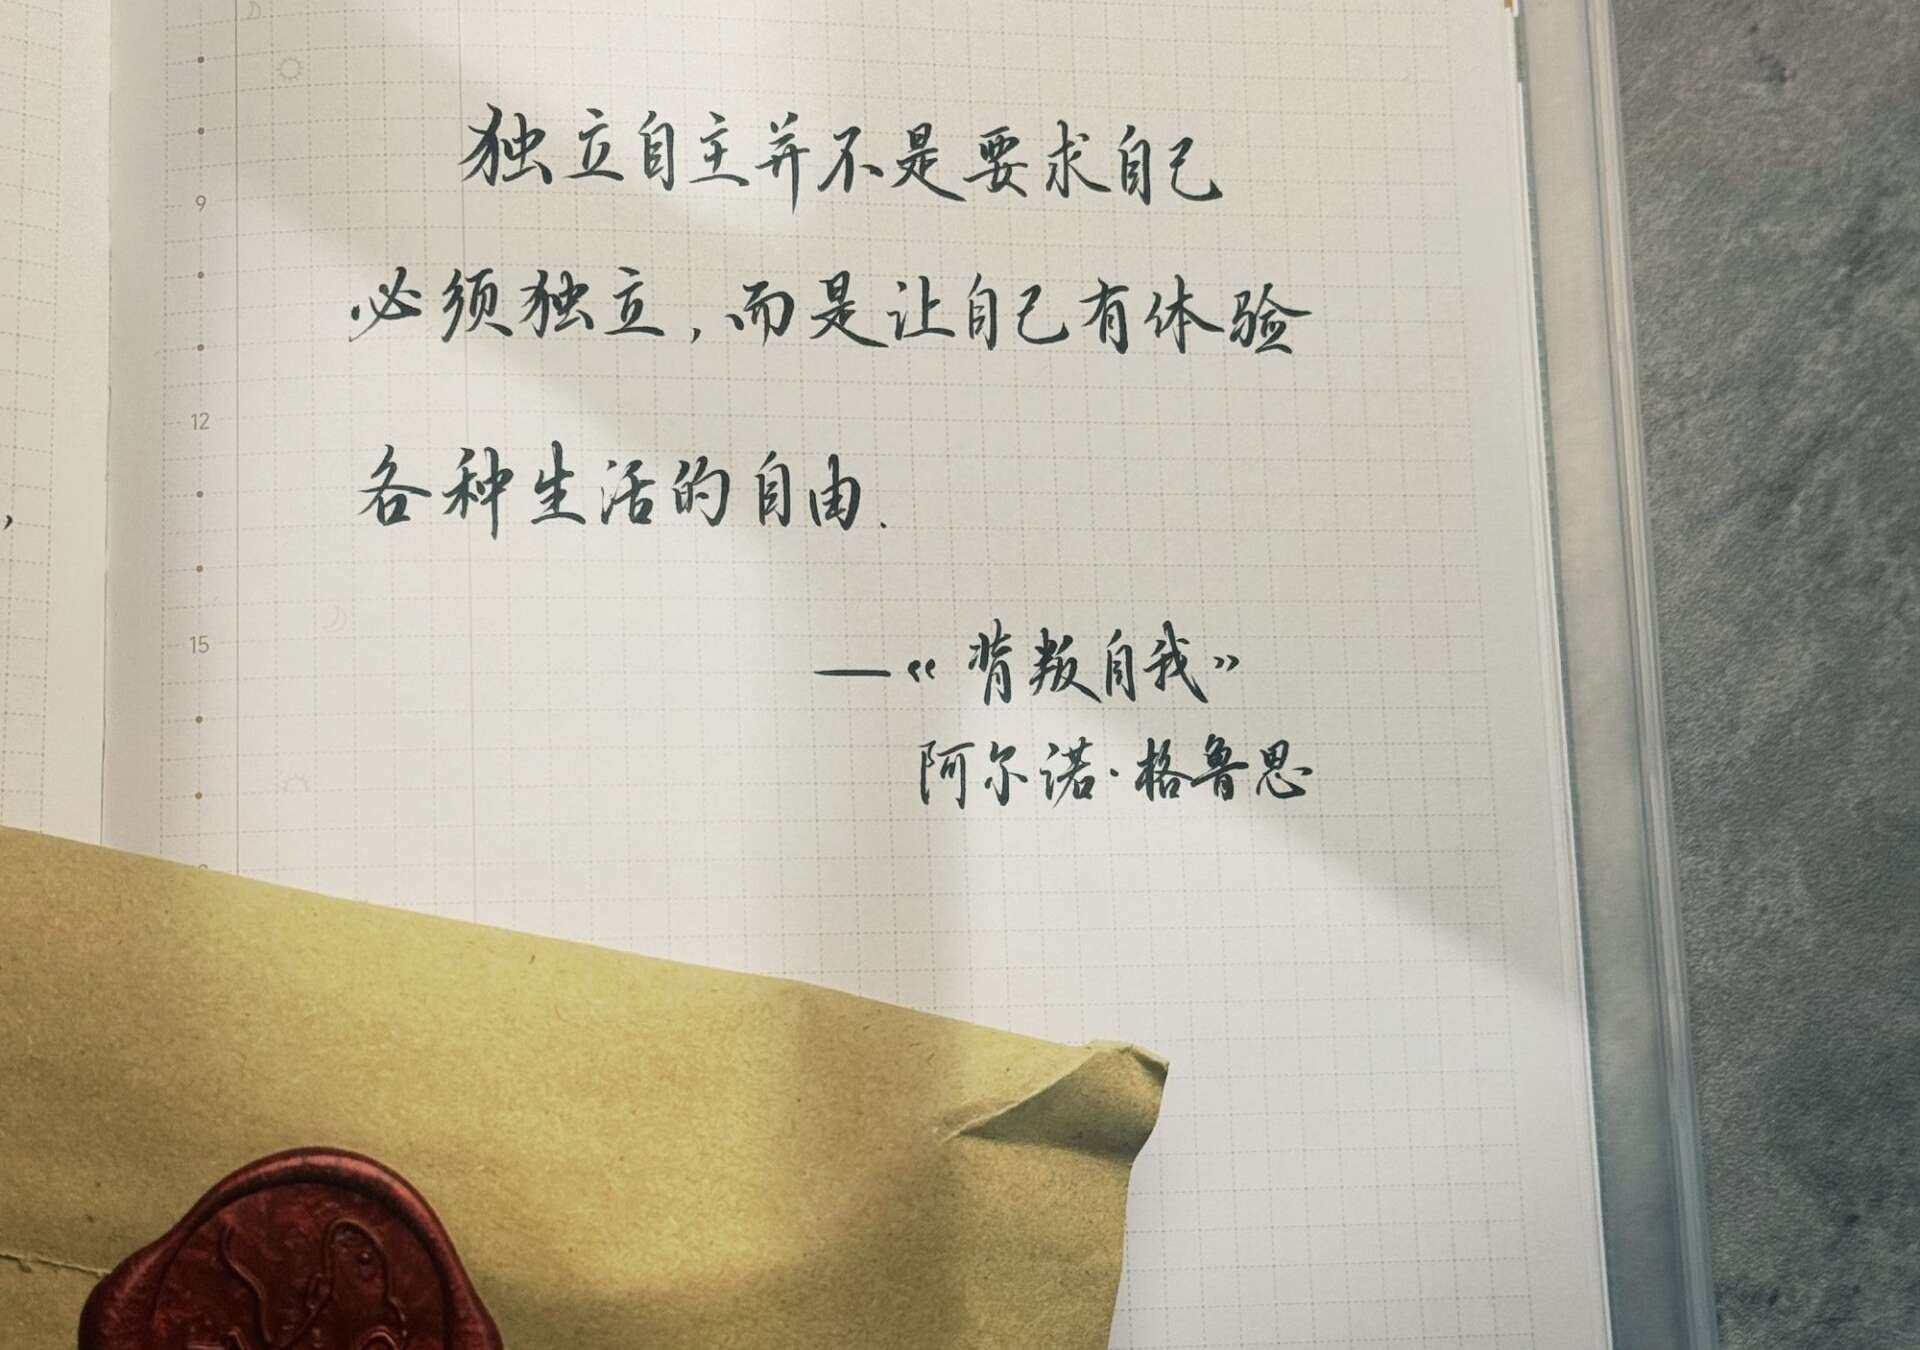 独立自主并不是要求自己
必须独立，而是让自己有体验
各种生活的自由.
—《背叛自我》
阿尔诺·格鲁恩
9
12
15
，